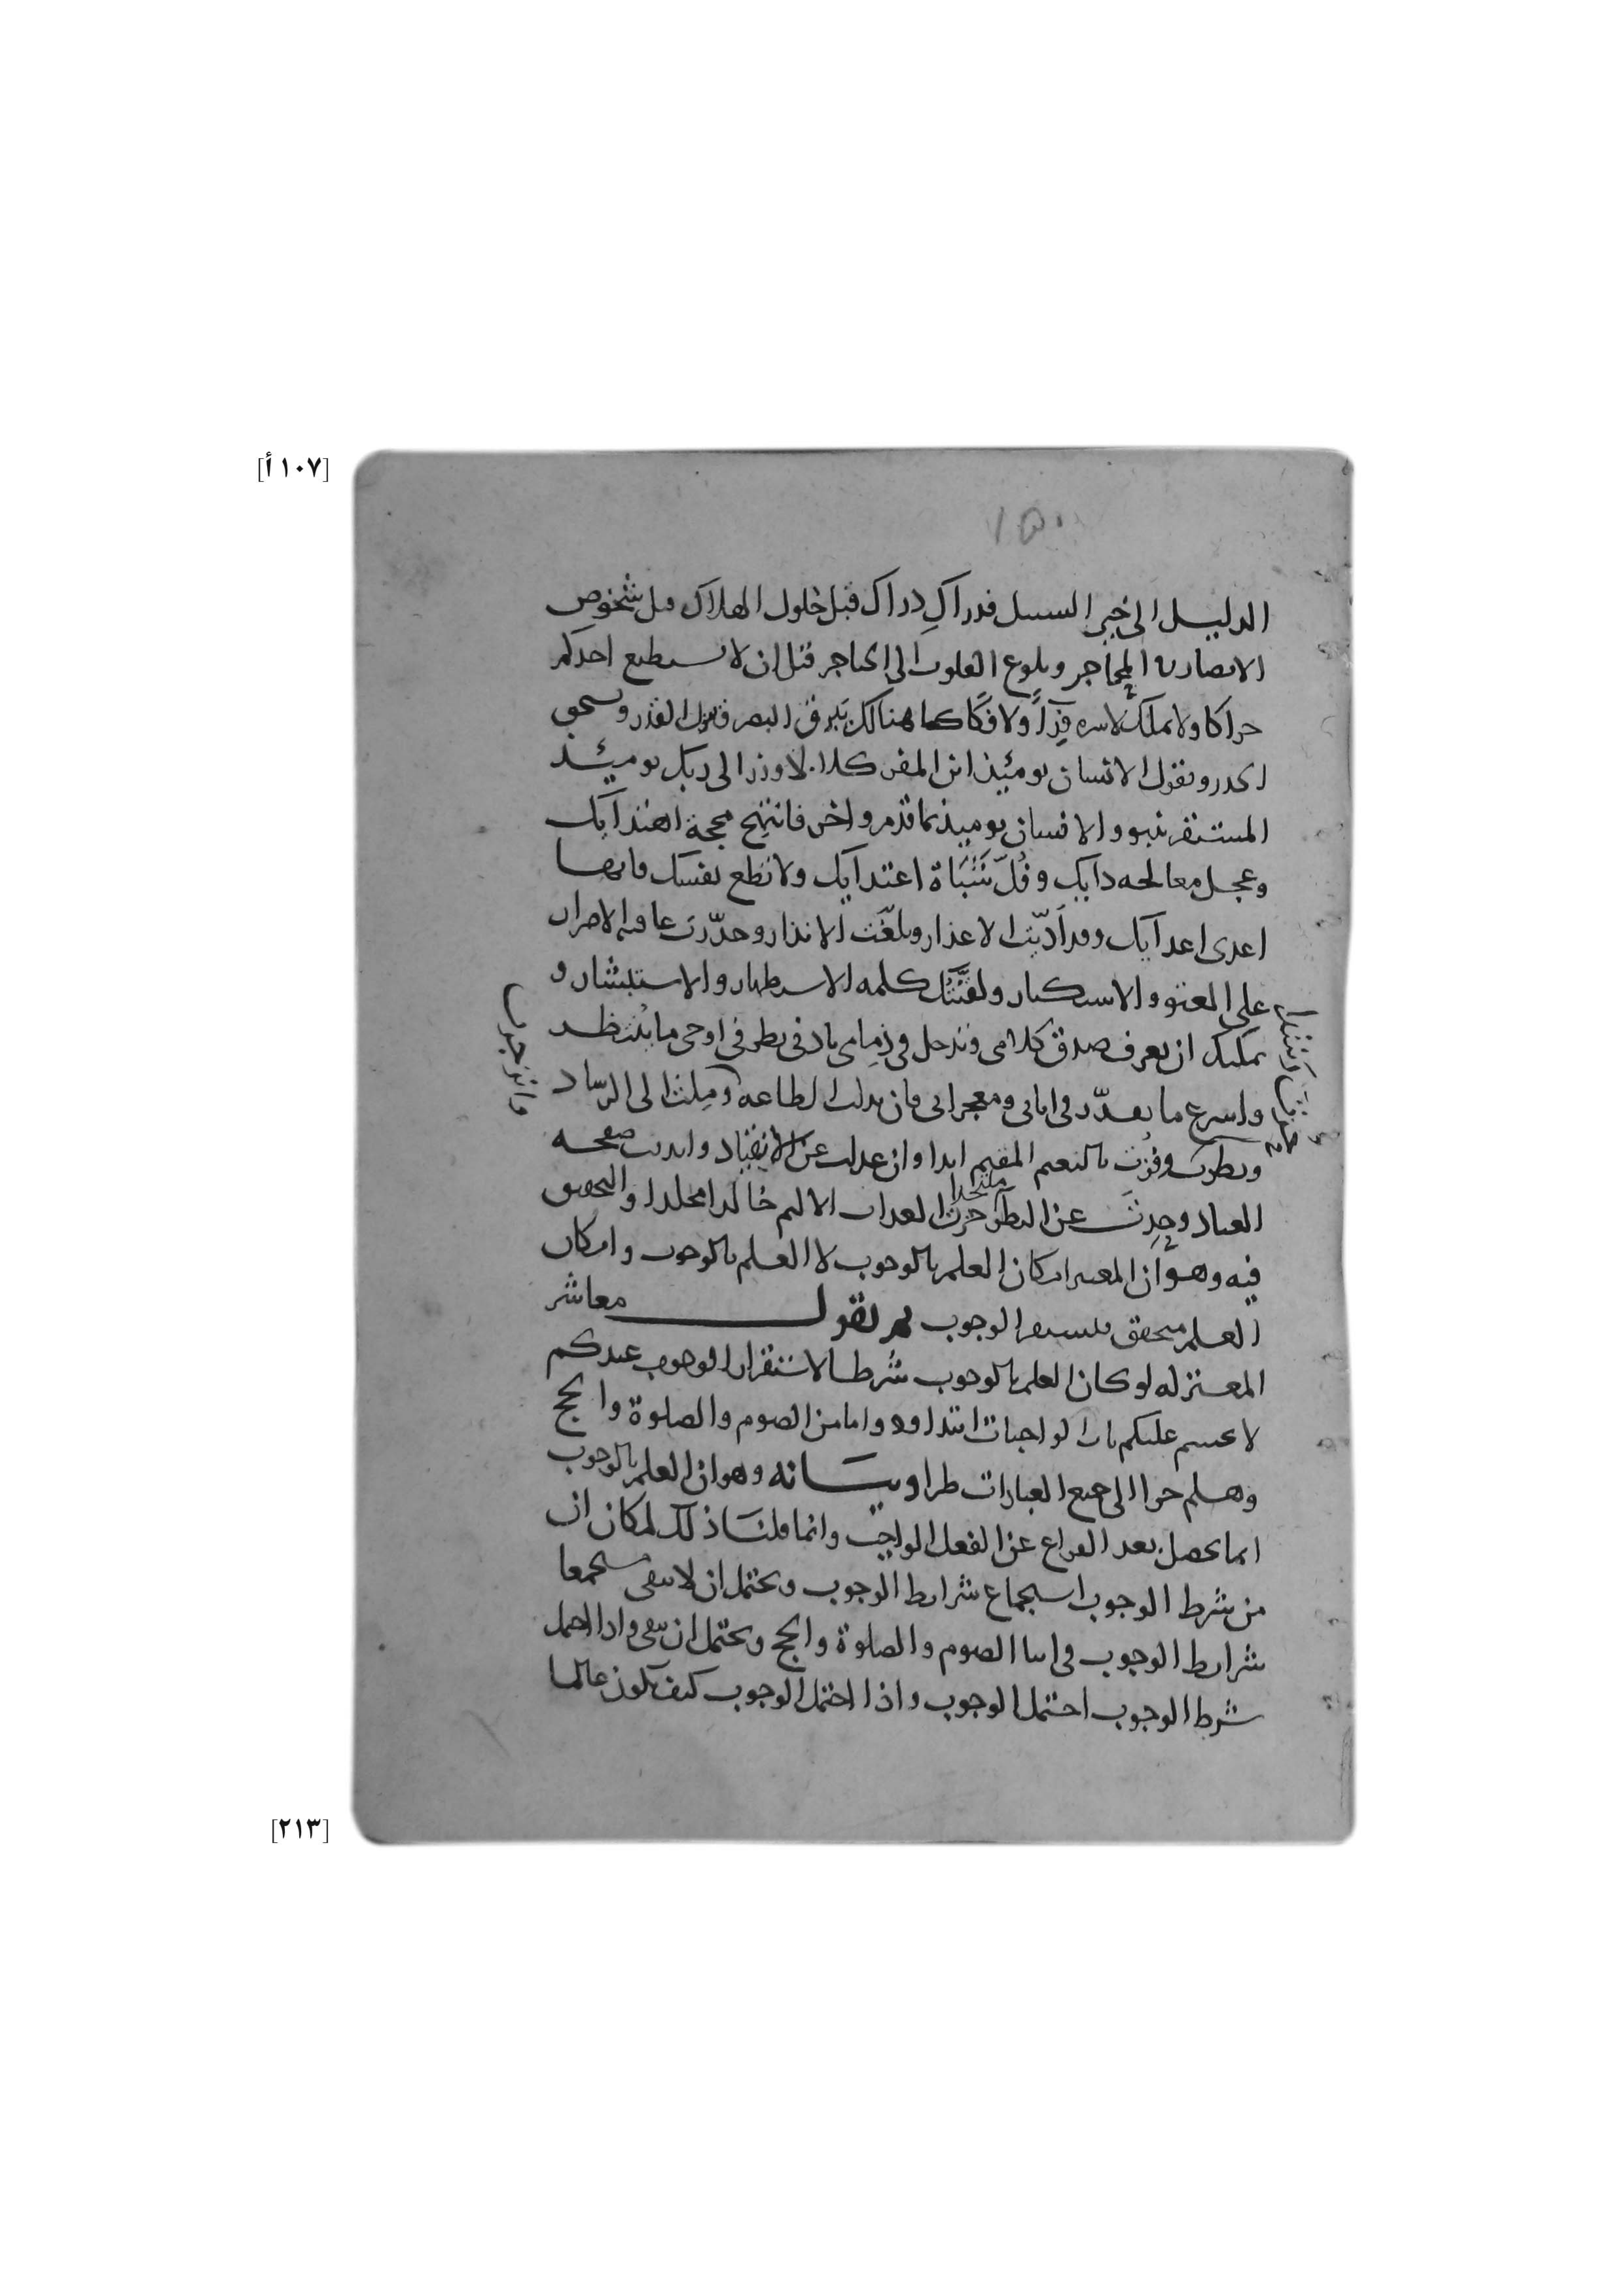 [١٠٧ أ]
١٥٠
الدليل الى خير السبيل فدراكِ دراك قبل حلول الهلاك وقبل شخوص
الابصار في المحاجر وبلوغ القلوب الى الحناجر قبل ان لا يستطيع احدكم
حراكا ولا يملك لاسره فِدآءً ولا فكاكا هنالك يبرق البصر وينزل القدر ويحق
الحذر ويقول الانسان يومئيذ اين المفر كلا لا وزر الى ربك يوميئذ
المستقر ينبو والانسان يوميذ بما قدم واخر فانتهج محجة اهتدآيك
وعجل معالجه دايك و اعتدايك ولا تطع نفسك فانها
اعدى اعدآيك وقد أدّيت الاعذار وبلّغت الانذار وحذّرت عاقبه الاصرار
على العتو والاستكبار ولقنتك كلمه الاستظهار والاستبشار و
يمكنك ان تعرف صدق كلامى وتدخل فى ذِمامى بادنى نظر فى اوحى ما يُنتظر
واسرع ما يعدّد فى اياتى ومعجزاتى فان بذلت الطاعه ومِلت الى الرشاد
ونظرت وفُزت بالنعيم المقيم ابدا وان عدلت عن الانقياد وابديت صفحه
العناد وحِدتَ عن النظر ملتحدا حزت العذاب الاليم خالدا مخلدا والتحقيق
فيه وهو ان المعتبر امكان العلم بالوجوب لا العلم بالوجوب وامكان
العلم متحقق فلينتف الوجوب ثم نقول معاشر
المعتزله لو كان العلم بالوجوب شرطا لاستقرار الوجوب عندكم
لا عليكم باب الواجبات ابتداء ودواما من الصوم والصلوة والحج
وهلم جرا الى جميع العبادات طرا وبيانه وهو ان العلم بالوجوب
انما يحصل بعد الفراغ عن الفعل الواجب وانما قلنا ذلك لمكان ان
من شرط الوجوب استجماع شرايط الوجوب ويحتمل ان لا يبقى مستجمعا
شرايط الوجوب فى اثنا الصوم والصلوة والحج ويحتمل ان يبقى واذا احتمل
شرط الوجوب احتمل الوجوب واذا احتمل الوجوب كيف يكون عالما
[٢١٣]